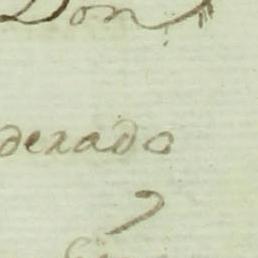 Don
derado